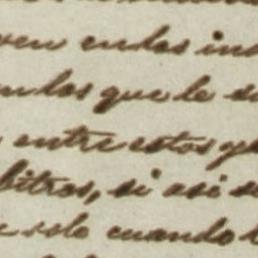 ven en las ins
en los que le su
entre estos y
bitros, si asi s
solo cuando